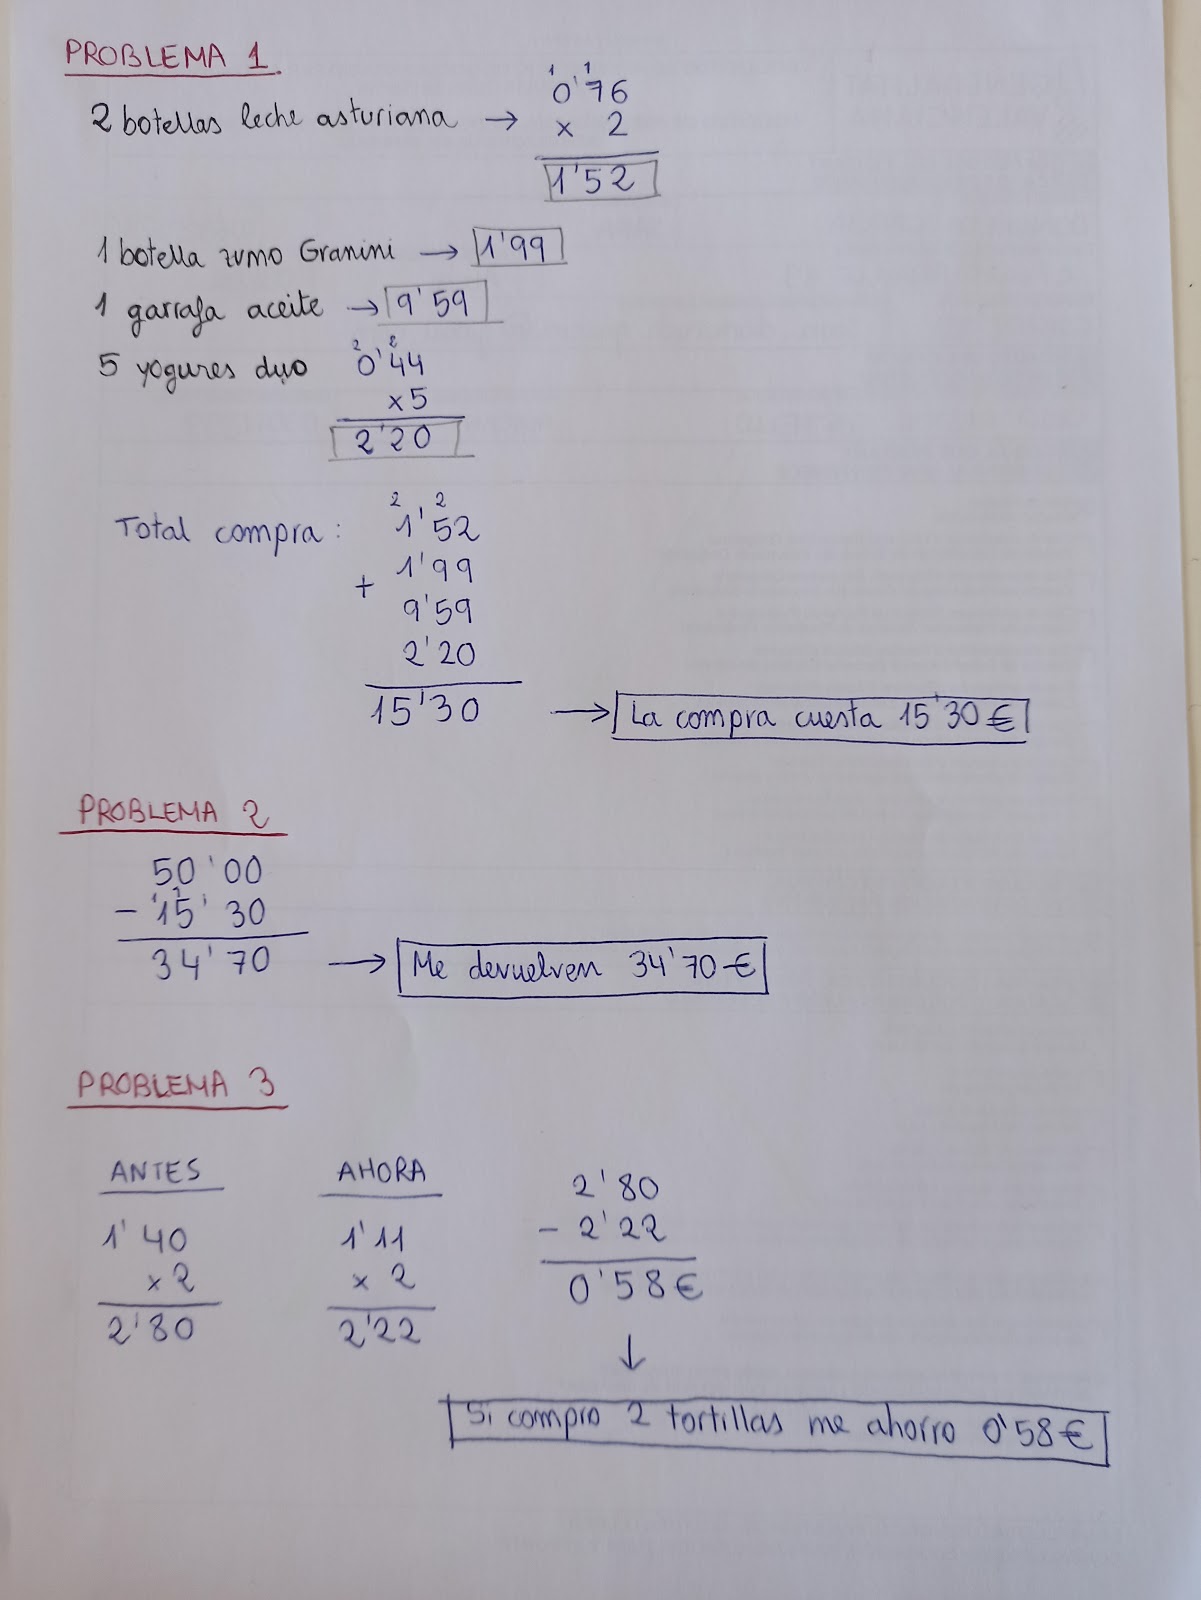 PROBLEMA 1.
1 1
0'76
2 botellas leche asturiana → x 2
1'52
1 botella zumo Granini → 1'99
1 garrafa aceite → 9'59
2 2
5 yogures duo 0'44
x5
2'20
2 2
Total compra: 1'52
+ 1'99
9'59
2'20
15'30 → La compra cuesta 15'30 €
PROBLEMA 2
50'00
- 15'30
34'70 → Me devuelven 34'70 €
PROBLEMA 3
ANTES
1'40
x2
2'80
AHORA
1'11
x 2
2'22
2'80
- 2'22
0'58€
↓
Si compro 2 tortillas me ahorro 0'58€